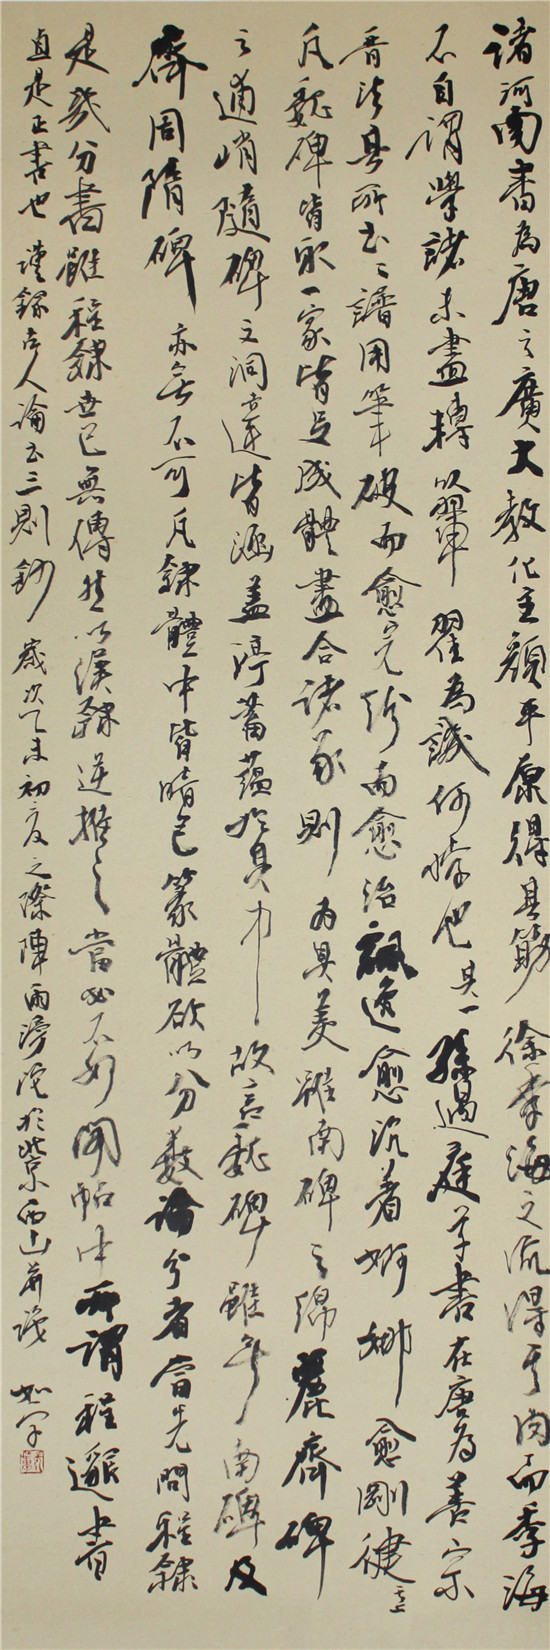 諸河南書為唐之廣大教化主顏平原得其筋徐季海之流得其肉而季海
不自謂學諸未盡轉以翬翟為誠何悖也其一孫過庭草書在唐為善宗
晉法其所書書譜用筆破而愈完紛而愈治飄逸愈沉著婀娜愈剛健其二
凡魏碑皆取一家皆足成體盡合諸家則為具美雖南碑之綿麗齊碑
之逋峭隨碑之洞達皆涵蓋渟蓄蘊於其中故言魏碑雖無南碑及
齊周隋碑亦無不可凡隸體中皆暗包篆體欲以分數論分者當先問程隸
是幾分書雖程隸世已無傳然以漢隸逆推之當必不如閣帖中所謂程邈書
直是正書也謹錄古人論書三則鈔歲次乙未初夏之際陣雨滂沱於北京西山并識